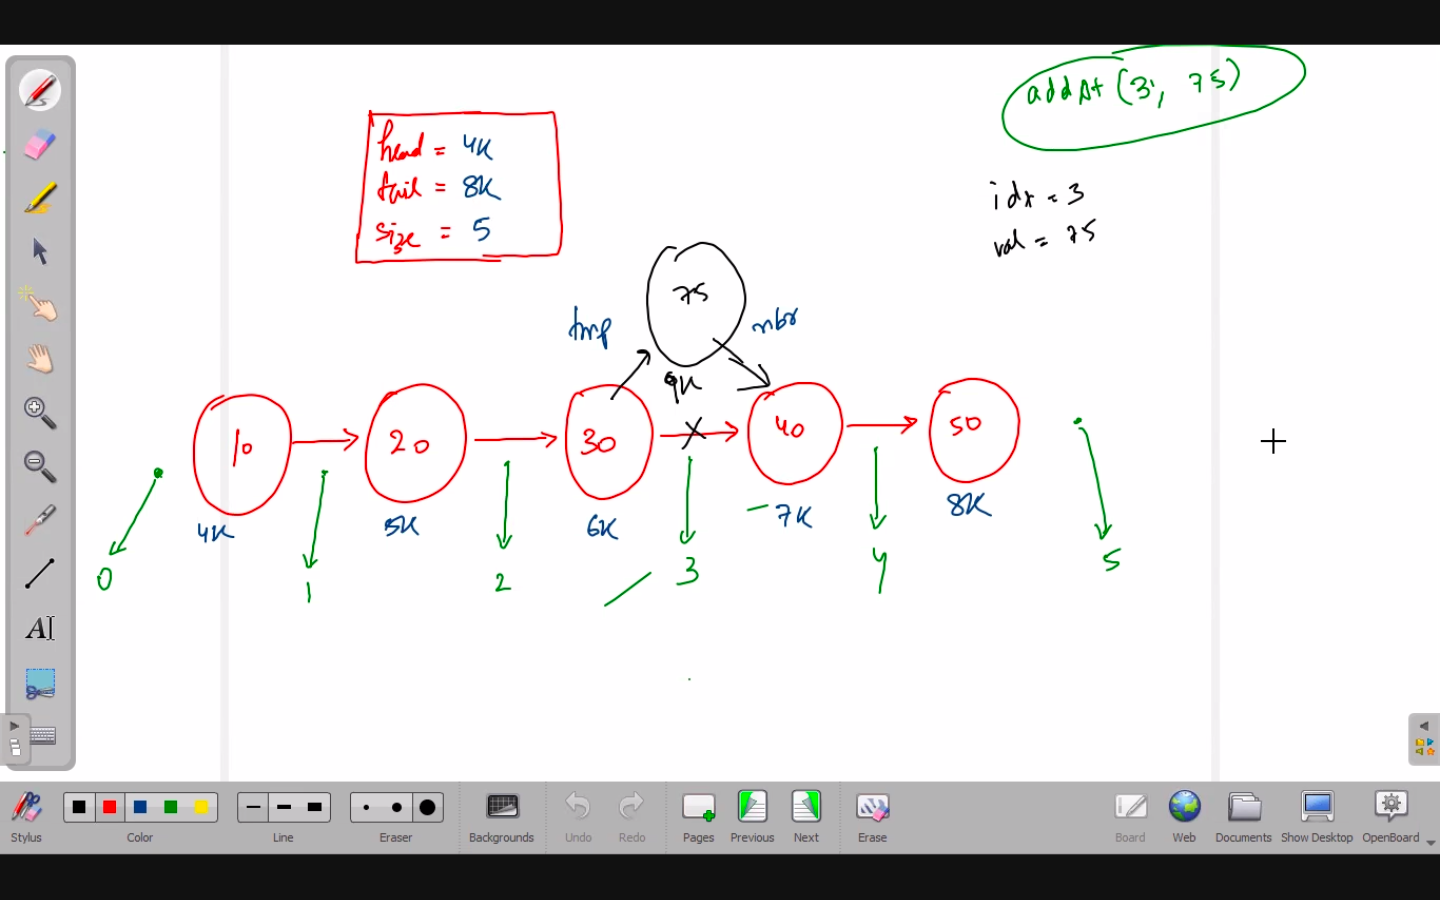 addAt (3, 75)
head = 4K
tail = 8K
size = 5
idx = 3
val = 75
75
tmp
nbr
9K
10
20
30
40
50
4K
5K
6K
7K
8K
0
1
2
3
4
5
A
Stylus
Color
Line
Eraser
Backgrounds
Undo
Redo
Pages
Previous
Next
Erase
Board
Web
Documents
Show Desktop
OpenBoard